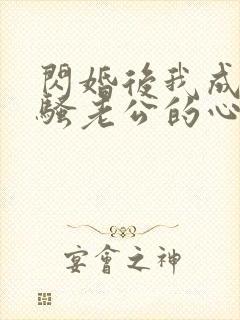 閃婚後我成
騷老公的心
宴會之神